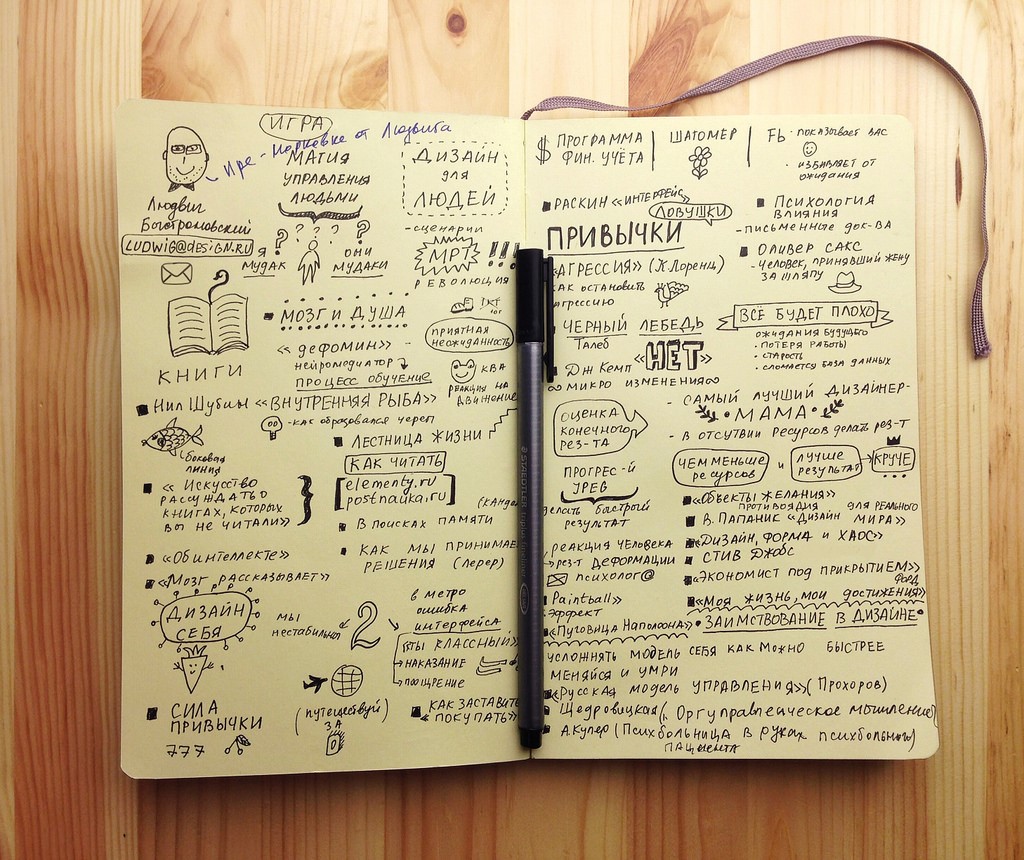 ИГРА
Людвига
МАГИЯ
УПРАВЛЕНИЯ
ЛЮДЬМИ
ДИЗАЙН
ДЛЯ
ЛЮДЕЙ
Людвиг
Быстроновский
LUDWIG@DESIGN.RU
Я
МУДАК
? ? ? ? ?
ОНИ
МУДАКИ
-СЦЕНАРИИ
МРТ !!!
РЕВОЛЮЦИЯ
КНИГИ
МОЗГ И ДУША
« дефомин» -
нейромодиатор
ПРОЦЕСС ОБУЧЕНИЕ
ПРИЯТНАЯ
НЕОЖИДАННОСТЬ
КВА
РЕАКЦИЯ НА
ДВИЖЕНИЕ
НИЛ ШУБИН «ВНУТРЕННЯЯ РЫБА»
-как образовался череп
боковая
линия
ЛЕСТНИЦА ЖИЗНИ
КАК ЧИТАТЬ
elementy.ru
postnauka.ru
« Искусство
рассуждать о
книгах, которых
вы не читали»
В поисках памяти
«Об интеллекте»
КАК МЫ ПРИНИМАЕ
РЕШЕНИЯ (лерер)
«Мозг рассказывает»
ДИЗАЙН
СЕБЯ
мы
нестабильны
2
в метро
ошибка
интерфейса
«ТЫ КЛАССНЫЙ»
НАКАЗАНИЕ
ПООЩРЕНИЕ
СИЛА
ПРИВЫЧКИ
777
(путешествуй)
ЗА
КАК ЗАСТАВИТЬ
«ПОКУПАТЬ»
STAEDTLER triplus fineliner
$ ПРОГРАММА
ФИН. УЧЁТА
ШАГОМЕР
Fb - показывает вас
- избавляет от
ожидания
РАСКИН «ИНТЕРФЕЙС»
ЛОВУШКИ
ПРИВЫЧКИ
ПСИХОЛОГИЯ
ВЛИЯНИЯ
-письменные док-ва
«АГРЕССИЯ» (К. Лоренц)
как остановить
агрессию
ОЛИВЕР САКС
-Человек, принявший жену
за шляпу
ЧЕРНЫЙ ЛЕБЕДЬ
Талеб
ВСЁ БУДЕТ ПЛОХО
ожидания будущего
• потеря работы
• старость
• сломается база данных
Дж Кемп «НЕТ»
МИКРО ИЗМЕНЕНИЯ
- САМЫЙ ЛУЧШИЙ ДИЗАЙНЕР-
• МАМА •
- в отсутвии ресурсов делать рез-т
ОЦЕНКА
КОНЕЧНОГО
РЕЗ-ТА
ЧЕМ МЕНЬШЕ
ресурсов
и
ЛУЧШЕ
результат
КРУЧЕ
ПРОГРЕС-Й
JPEG
делать быстрый
результат
«Объекты желания»
противоядия для реального
В. Папаник «Дизайн мира»
«Дизайн, форма и хаос»
СТИВ ДЖОБС
реакция человека
рез-т ДЕФОРМАЦИИ
психолог@
«Экономист под прикрытием»
Форд
«Моя жизнь, мои достижения»
Paintball»
эффект
«Пуговица Наполеона»
• ЗАИМСТВОВАНИЕ В ДИЗАЙНЕ •
УСЛОЖНЯТЬ МОДЕЛЬ СЕБЯ КАК МОЖНО БЫСТРЕЕ
МЕНЯЙСЯ И УМРИ
«Русская модель управления» (Прохоров)
Щедровицкая (. Оргуправленческое мышление)
А.Купер (Психбольница в руках психбольных)
пациента